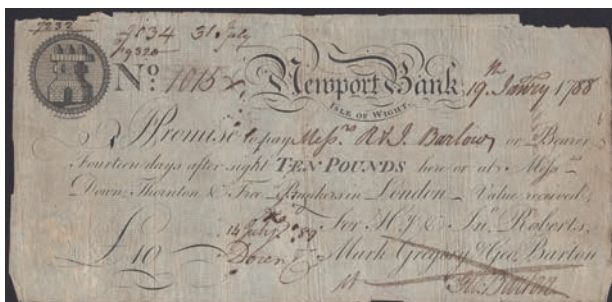 7232
7534 31 July
9320
No. 1015 Newport Bank 19th Janry 1788
ISLE OF WIGHT.
I Promise to pay Messrs R & J. Barlow or Bearer
Fourteen days after sight TEN POUNDS here or at Messrs
Down, Thornton & Free Bankers in London Value received
14 July 89 For H. J. & Jno. Roberts,
£10 Down Mark Gregory & Geo. Barton
Geo. Barton